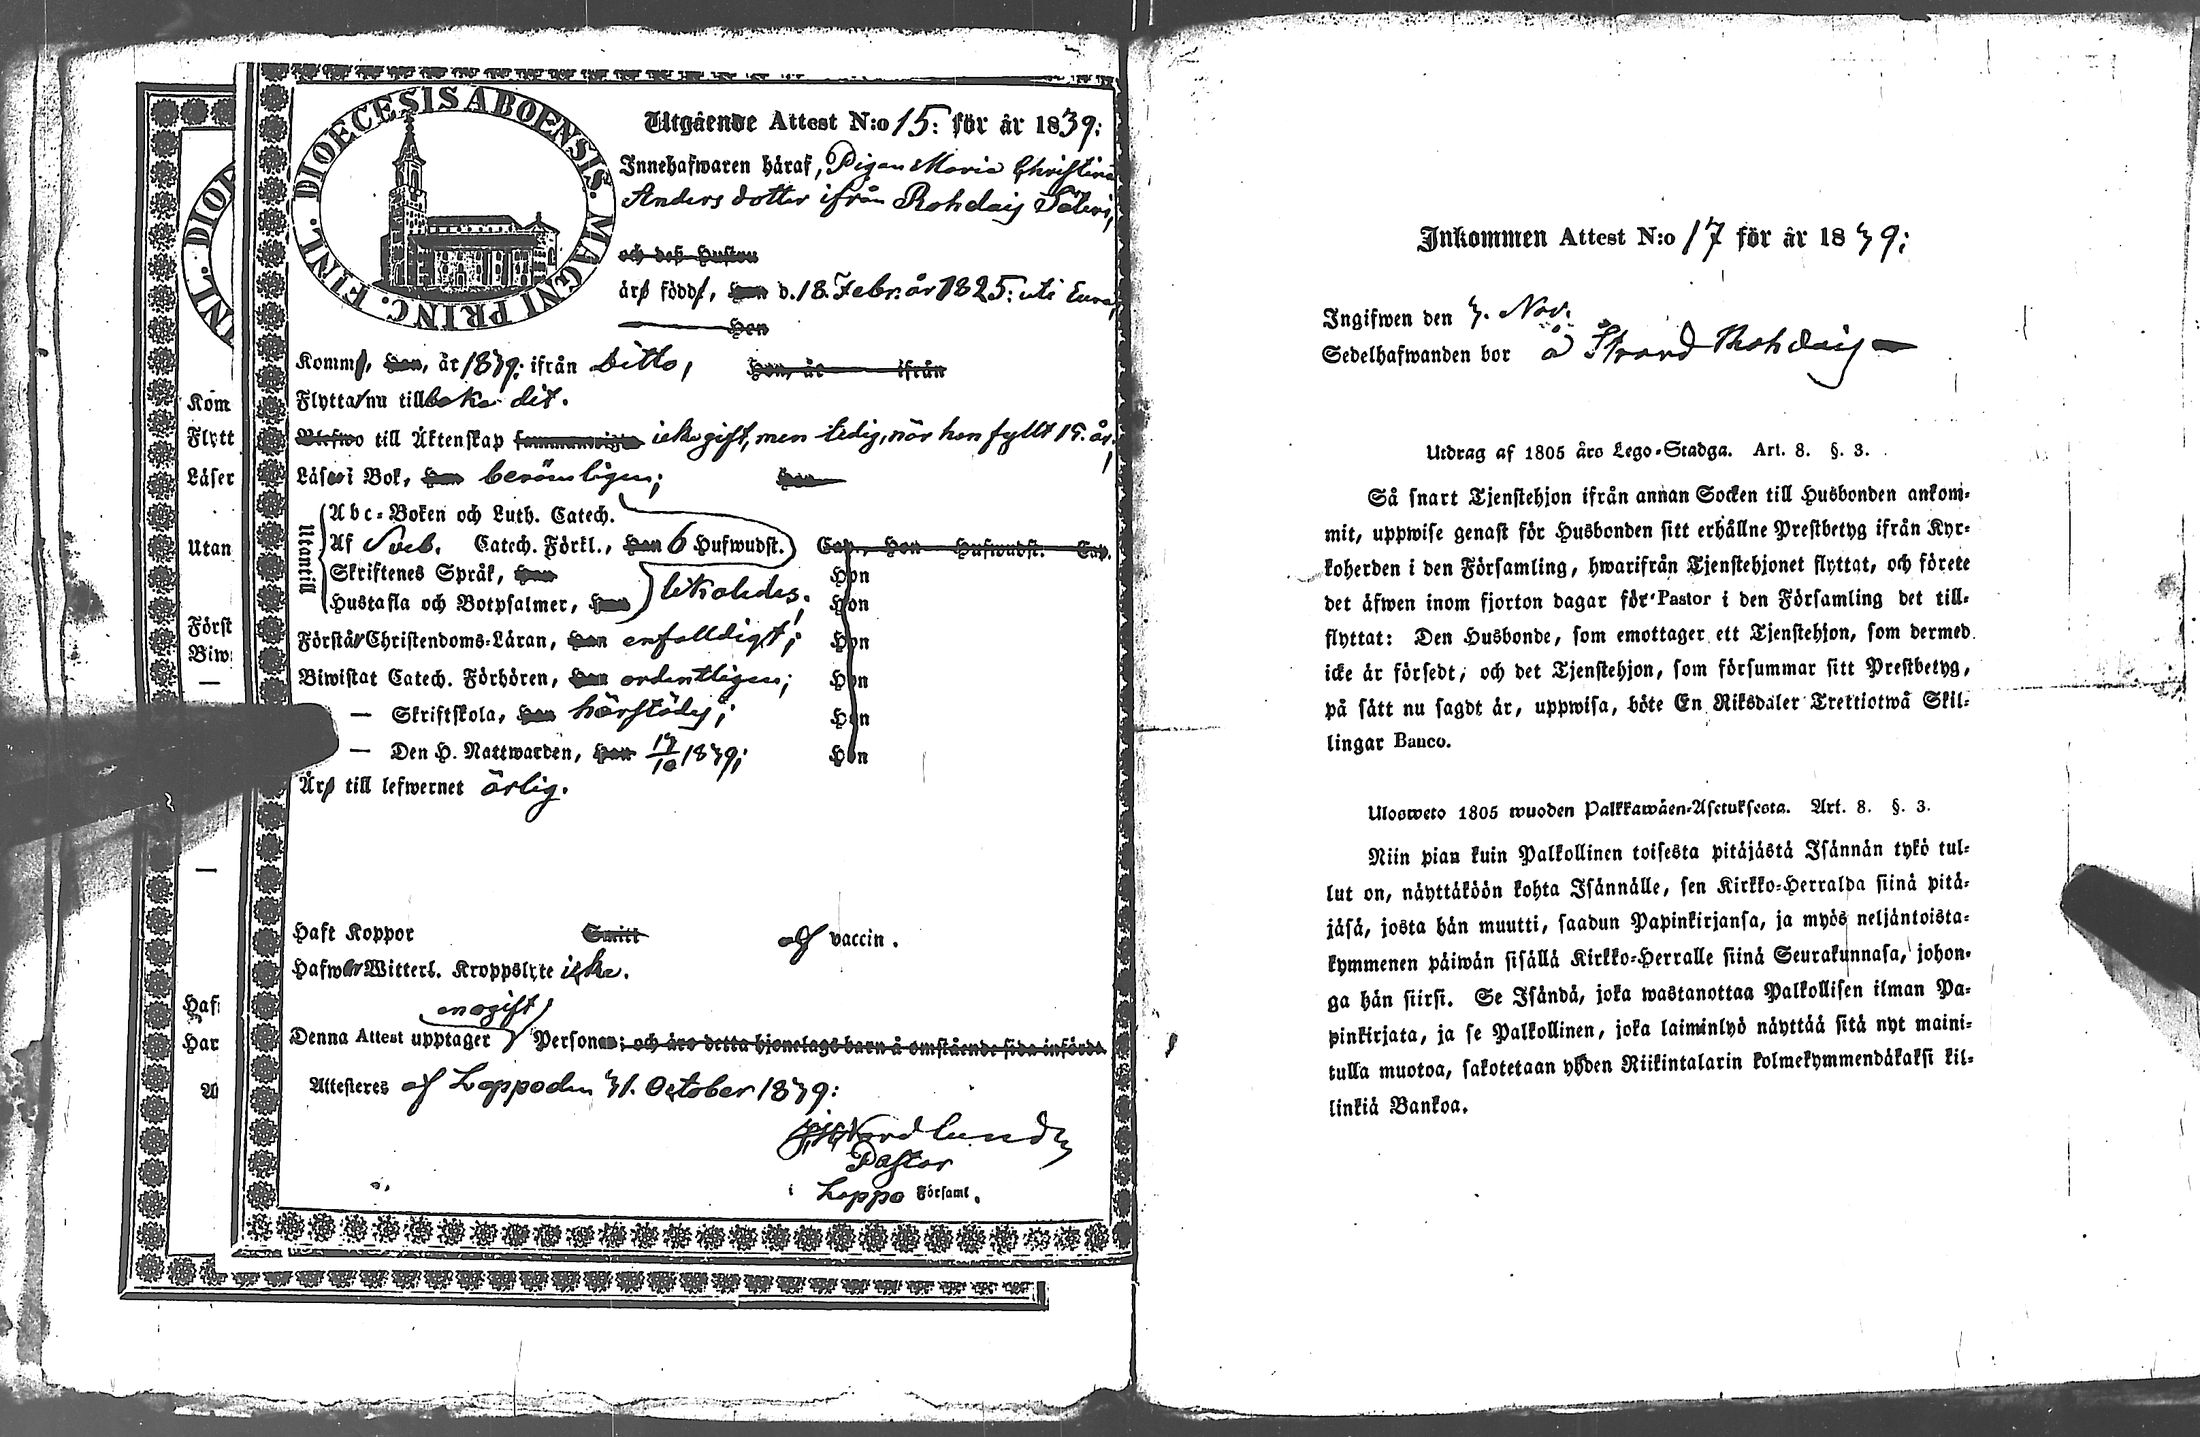 DIOECESIS ABOENSIS. MAGNI PRINC. FINL.
Utgående Attest N:o 15: för år 1839:
Innehafwaren håraf, Pigan Maria Christina
Anders dotter ifrån Rohdaij Säteri,
och deß Hustru
år född, han d. 18. Febr. år 1825: uti Eura,
Hon
Komm, han, år 1839: ifrån Ditto, hon, år ifrån
Flytta nu tillbaka dit.
Blefwo till Äktenskap icke gift, men ledig, när hon fyllt 15. år.
Läser i Bok, han berömligen; hon
Utantill
Abc-Boken och Luth. Catech.
Af Sveb. Catech. Förkl., han 6 Hufwudst. Cap., Hon Hufwudst. Cap.
Skriftenes Språk, han Hon
Hustafla och Botpsalmer, han likaledes; Hon
Förstår Christendoms-Läran, han enfalldigt; Hon
Biwistat Catech. Förhören, han ordentligen; Hon
— Skriftskola, han härstädes; Hon
— Den H. Nattwarden, han 17/10 1839; Hon
Är till lefwernet ärlig.
Haft Koppor Smitt af vaccin.
Hafwer Witterl. Kroppslyte icke.
en ogift
Denna Attest upptager Personer; och äro detta hjonelags barn å omstående sida införda
Attesteres af Loppo den 31. October 1839:
Nordlund
Pastor
i Loppo Församl.
DIOE
INL.
Kom
Flytt
Läser
Utan
Först
Biw
—
—
Haf
Har
Inkommen Attest N:o 17 för år 1839;
Ingifwen den 3. Nov.
Sedelhafwanden bor å Strand Rohdaij
Utdrag af 1805 års Lego-Stadga. Art. 8. §. 3.
Så snart Tjenstehjon ifrån annan Socken till Husbonden ankom-
mit, uppwise genast för Husbonden sitt erhållne Prestbetyg ifrån Kyr-
koherden i den Församling, hwarifrån Tjenstehjonet flyttat, och förete
det äfwen inom fjorton dagar för Pastor i den Församling det till-
flyttat: Den Husbonde, som emottager ett Tjenstehjon, som dermed
icke är försedt, och det Tjenstehjon, som försummar sitt Prestbetyg,
på sätt nu sagdt är, uppwisa, böte En Riksdaler Trettiotwå Skil-
lingar Banco.
Ulosweto 1805 wuoden Palkkawäen-Asetuksesta. Art. 8. §. 3.
Niin pian kuin Palkollinen toisesta pitäjästä Isännän tykö tul-
lut on, näyttäköön kohta Isännälle, sen Kirkko-Herralda siinä pitä-
jäsä, josta hän muutti, saadun Papinkirjansa, ja myös neljäntoista-
kymmenen päiwän sisällä Kirkko-Herralle siinä Seurakunnasa, johon-
ga hän siirsi. Se Isändä, joka wastanottaa Palkollisen ilman Pa-
pinkirjata, ja se Palkollinen, joka laiminlyö näyttää sitä nyt maini-
tulla muotoa, sakotetaan yhden Riikintalarin kolmekymmendäkaksi kil-
linkiä Bankoa.